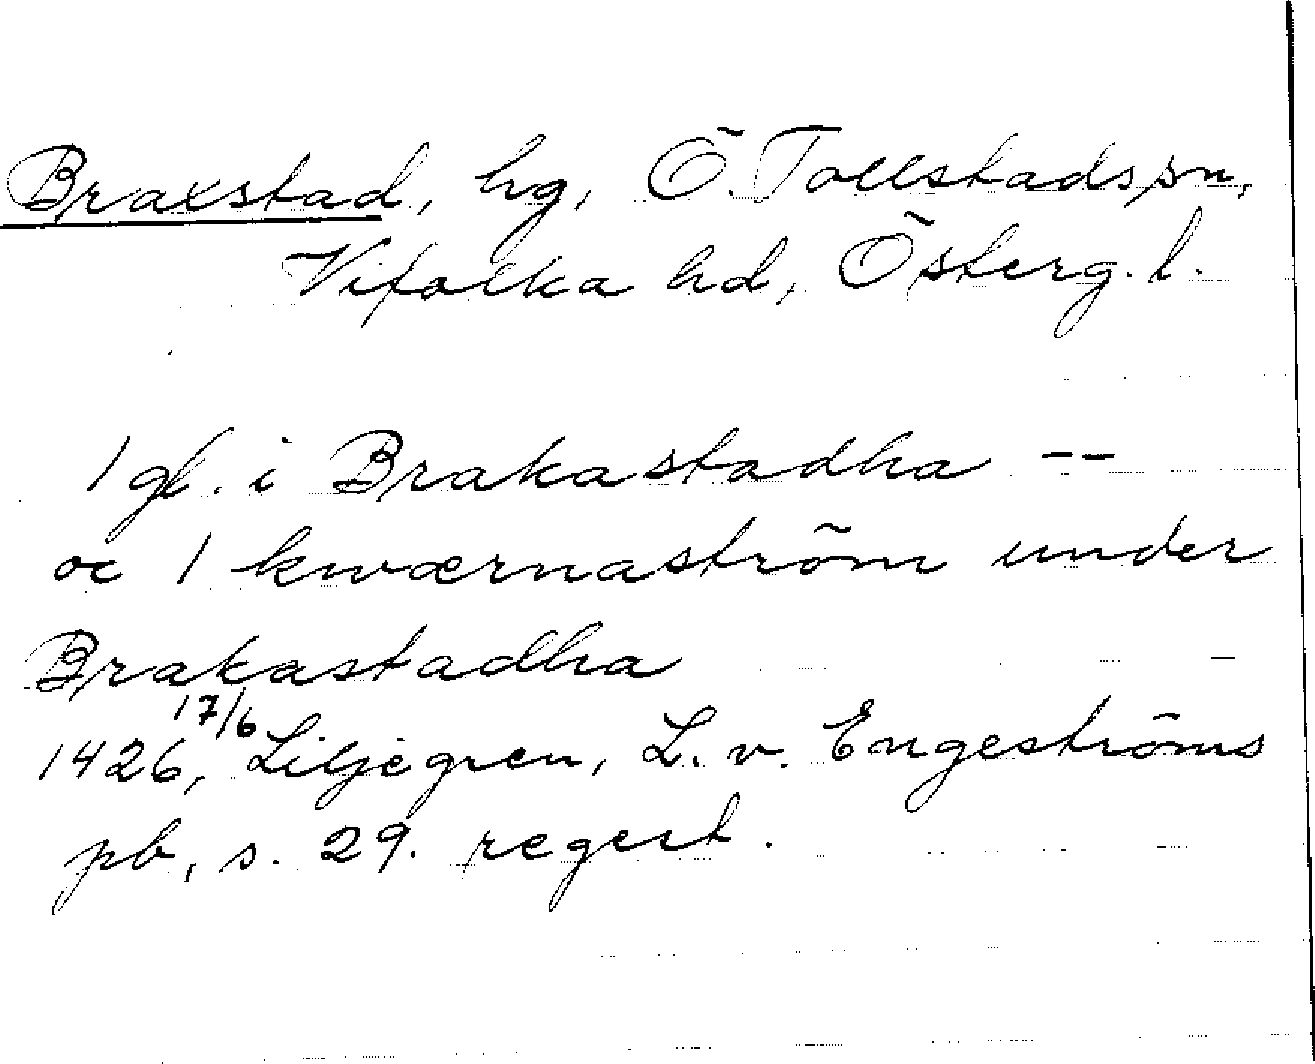 Braxstad, hg, Ö. Tollstads sn,
Vifolka hd, Österg. l.
1 gl. i Brakastadha --
oc 1 kwærnaström under
Brakastadha
1426, 17/6 Liljegren, L. v. Engeströms
pb, s. 29. regest.